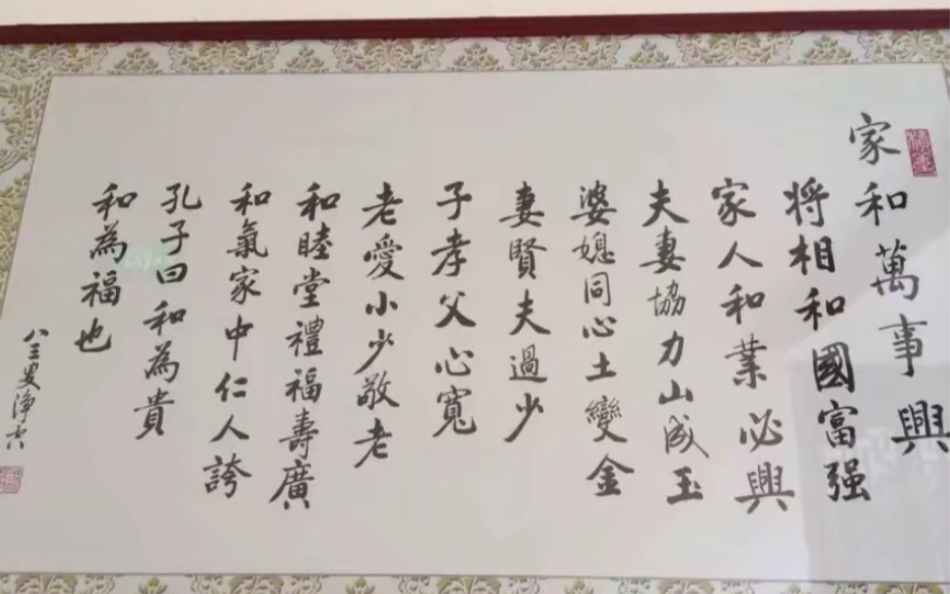 家和萬事興
将相和國富强
家人和業必興
夫妻協力山成玉
婆媳同心土變金
妻賢夫過少
子孝父心寬
老愛小少敬老
和睦堂禮福壽廣
和氣家中仁人誇
孔子曰和為貴
和為福也
八三叟淨六